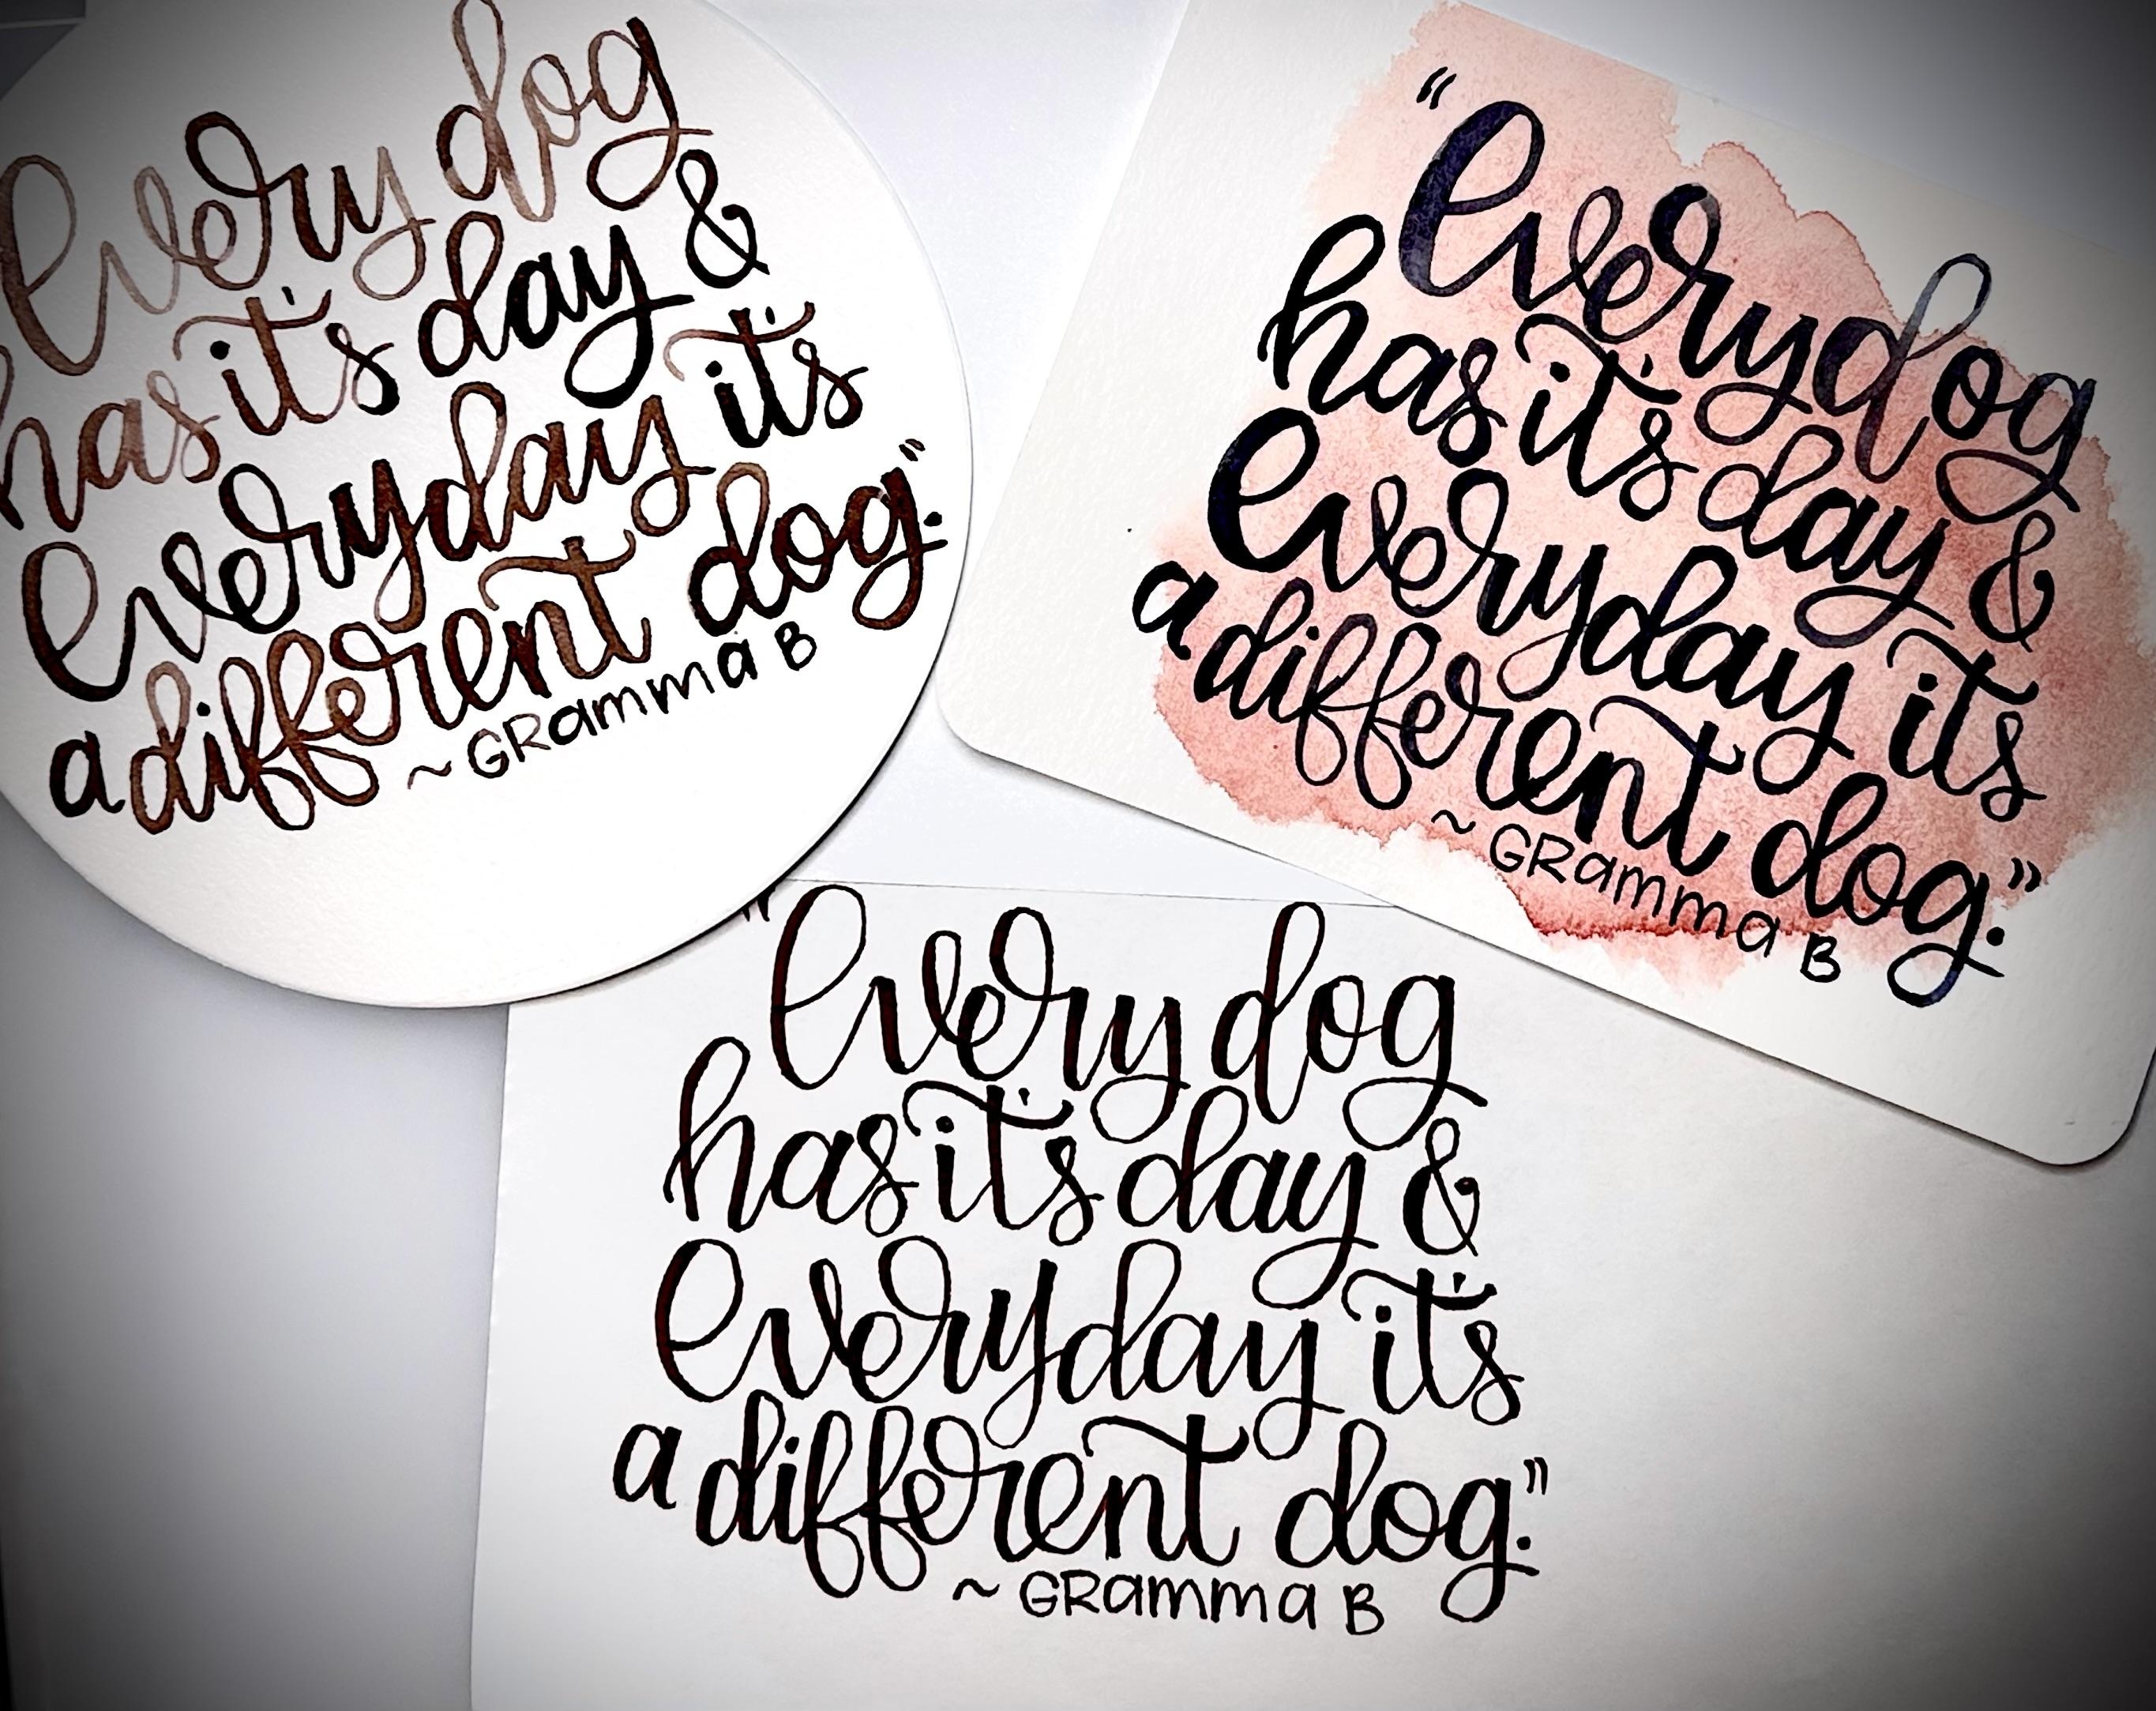 every dog
has it's day &
everyday it's
a different dog."
~ GRamma B
"every dog
has it's day &
everyday it's
a different dog."
~ GRamma B
"every dog
has it's day &
everyday it's
a different dog."
~ GRamma B